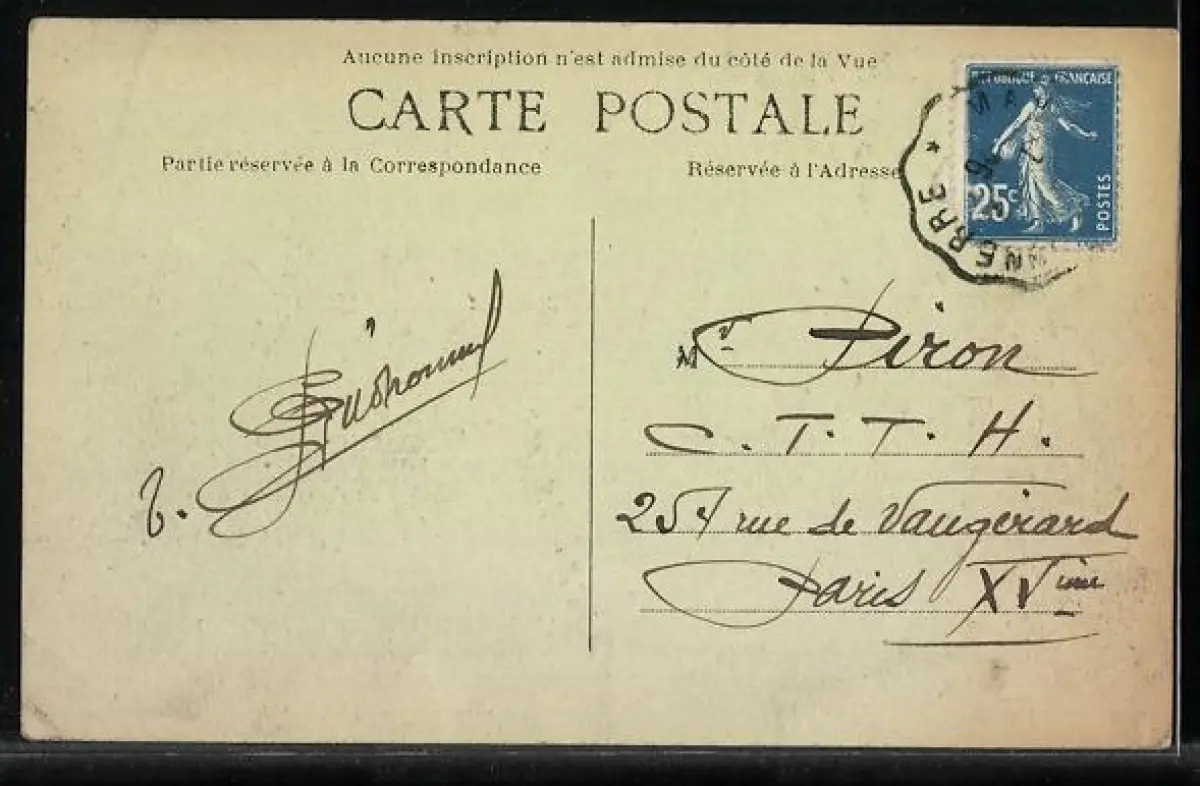 Aucune inscription n'est admise du côté de la Vue
CARTE POSTALE
Partie réservée à la Correspondance
Réservée à l'Adresse
RÉPUBLIQUE FRANÇAISE
25c
POSTES
Mr Piron
C. T. T. H.
257 rue de Vaugirard
Paris XVième